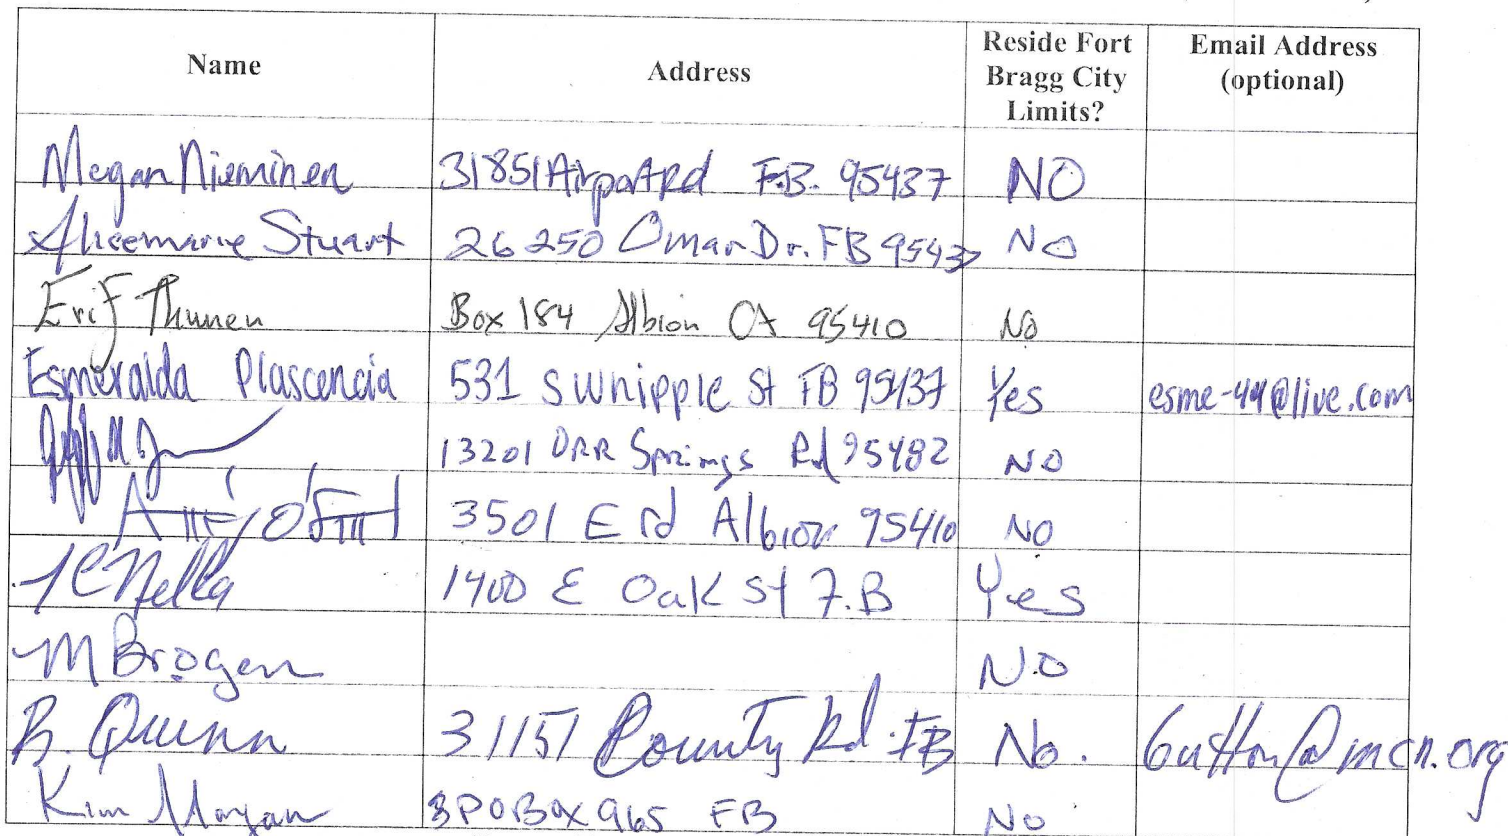 Name Address Reside Fort Bragg City Limits? Email Address (optional)
Megan Nieminen 31851 Airport Rd F.B. 95437 NO
Aliceemarie Stuart 26250 Omar Dr. FB 95437 No
Erif Thunen Box 184 Albion CA 95410 No
Esmeralda Plascencia 531 S Whipple St FB 95437 Yes esme-44@live.com
13201 ORR Springs Rd 95482 NO
3501 E rd Albion 95410 NO
1400 E Oak St F.B Yes
M Brogen NO
B. Quinn 31151 County Rd FB No. button@mcn.org
Kim Morgan PO Box 965 FB No